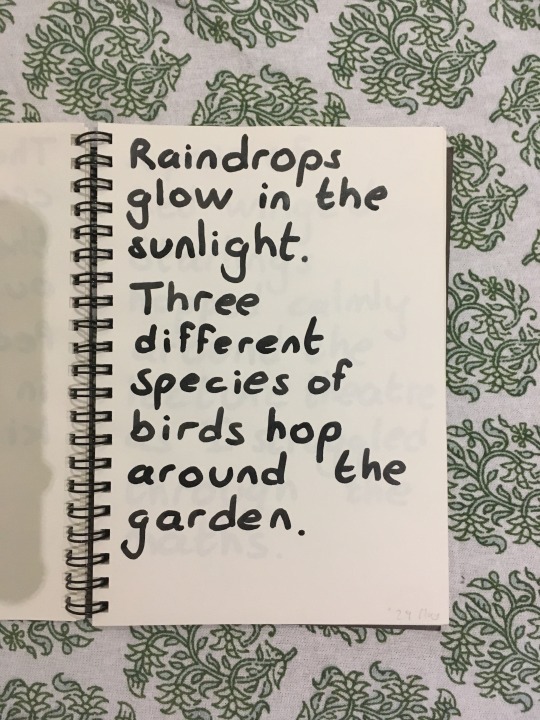 Raindrops
glow in the
sunlight.
Three
different
species of
birds hop
around the
garden.